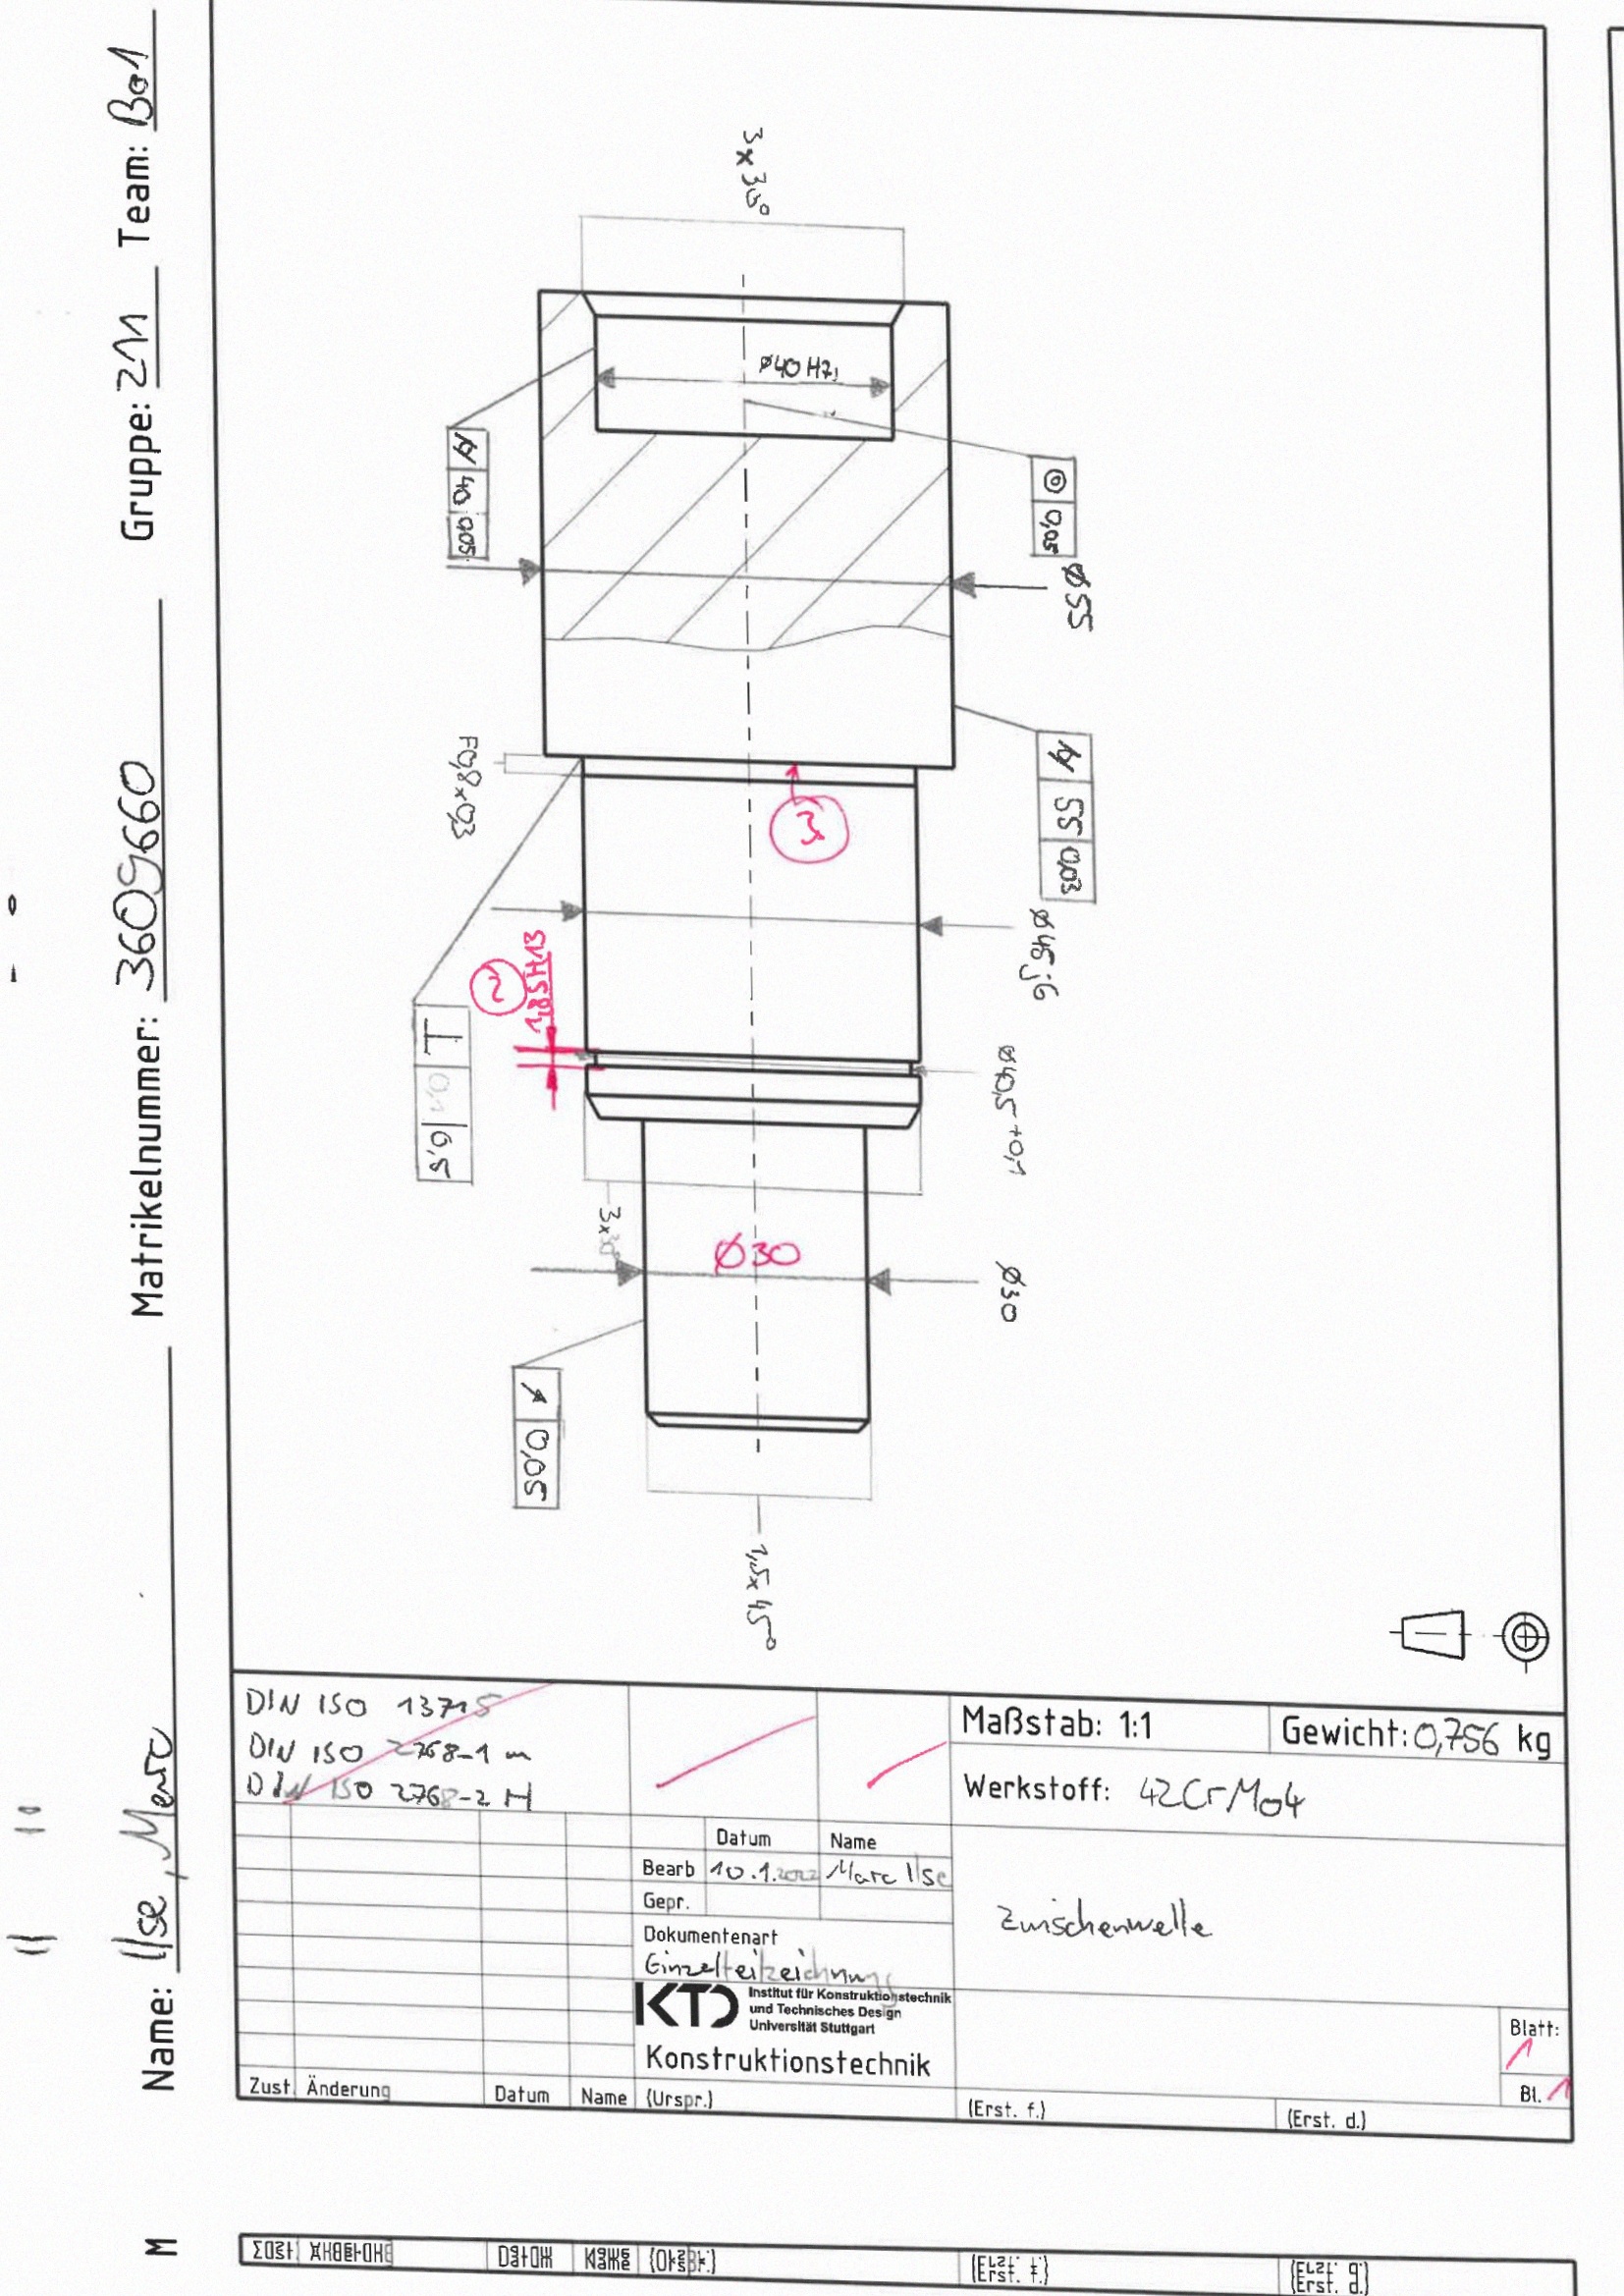 Name: Ilse, Marc Matrikelnummer: 3609660 Gruppe: 211 Team: B01
3x30°
Ø40 H7
40 0,05
◎ 0,05
Ø55
F0,8x0,3
55 0,03
3
Ø45 j6
2
1,85H13
⊥
Ø40,5 +0,1
3x30°
Ø30
Ø30
↗ 0,05
1,5x45°
DIN ISO 13715
DIN ISO 2768-1 m
DIN ISO 2768-2 H
Maßstab: 1:1
Gewicht: 0,756 kg
Werkstoff: 42CrMo4
Datum Name
Bearb 10.1.2022 Marc Ilse
Gepr.
Zwischenwelle
Dokumentenart
Einzelteilzeichnung
KTD
Institut für Konstruktionstechnik
und Technisches Design
Universität Stuttgart
Konstruktionstechnik
Blatt:
1
Bl. 1
Zust. Änderung Datum Name (Urspr.) (Erst. f.) (Erst. d.)